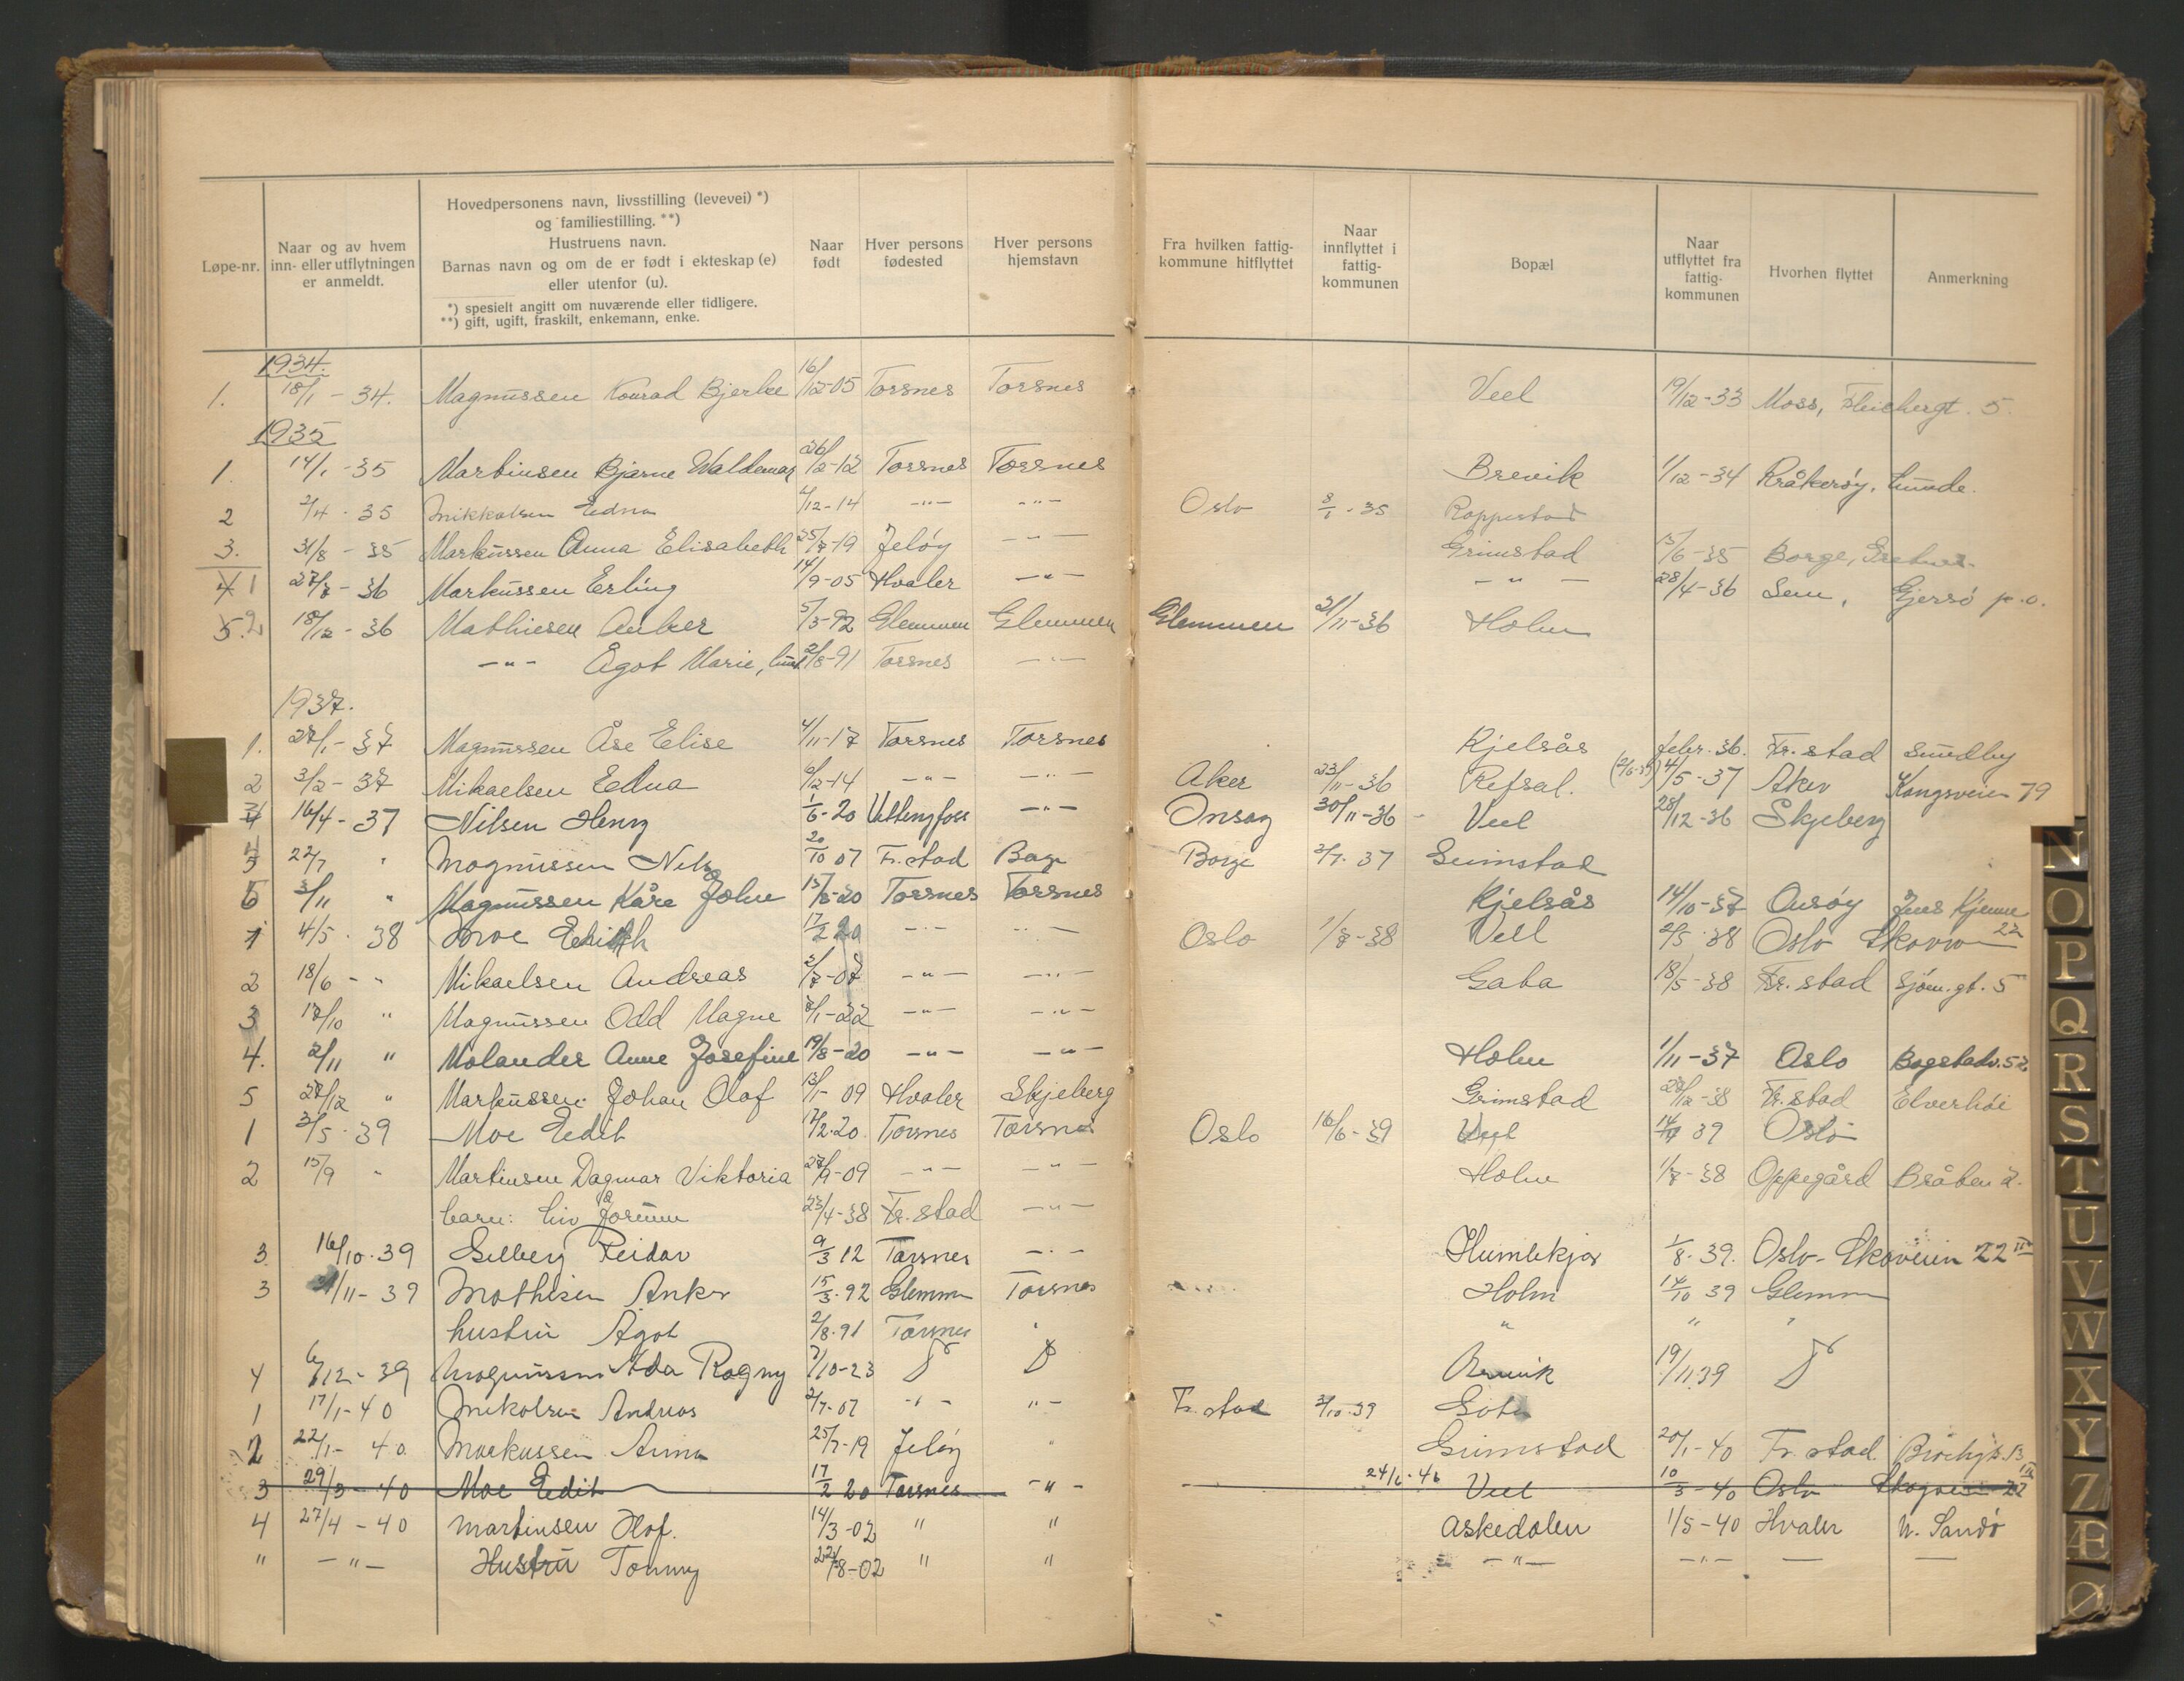 Løpe-nr. | Naar og av hvem inn- eller utflytningen er anmeldt. | Hovedpersonens navn, livsstilling (levevei) *) og familiestilling. **) Hustruens navn. Barnas navn og om de er født i ekteskap (e) eller utenfor (u). *) spesielt angitt om nuværende eller tidligere. **) gift, ugift, fraskilt, enkemann, enke. | Naar født | Hver persons fødested | Hver persons hjemstavn | Fra hvilken fattig-kommune hitflyttet | Naar innflyttet i fattig-kommunen | Bopæl | Naar utflyttet fra fattig-kommunen | Hvorhen flyttet | Anmerkning
1934.
1. 18/1 - 34. Magnussen Konrad Bjerke 16/12-05 Torsnes Torsnes Veel 19/12-33 Moss, 5.
1935
1. 14/1-35 Martinsen Bjarne Waldemar 26/2-12 Torsnes Torsnes Brevik 1/12-34 Kråkerøy, Lunde.
2 2/4-35 Mikkalsen Edna 2/12-14 -"- -"- Oslo 8/1-35 Roppestad
3. 31/8-35 Markussen Anna Elisabeth 25/7-19 Jeløy -"- Grimstad 15/6-35 Borge,
4 1 27/7-36 Markussen Erling 14/9-05 Hvaler -"- -"- 28/4-36 Sem, Gjersø p.o.
5. 2 18/12-36 Mathiesen Anker 5/3-92 Glemmen Glemmen Glemmen 21/11-36 Holm
-"- Ågot Marie, 2/8-91 Torsnes -"-
1937.
1. 27/1-37 Magnussen Åse Elise 4/11-17 Torsnes Torsnes Kjelsås febr. 36. Fr.stad Smedby
2 3/2-37 Mikaelsen Edna 2/12-14 -"- -"- Aker 23/11-36 Refsal. 4/5-37 Aker Kongsveien 79
16/4-37 Nilsen Henry 1/6-20 -"- Onsøy 30/11-36 Veel 28/12-36 Skjeberg
4 22/7 " Magnussen Nils 20/10 07 Fr.stad Borge Borge 2/7-37 Grimstad
5 3/11 " Magnussen Kåre John 15/8-20 Torsnes Torsnes Kjelsås 14/10-37 Onsøy
1 4/5-38 Moe Edith 17/2 20 -"- -"- Oslo 1/7-38 Vell 2/5-38 Oslo 22
2 18/6 -"- Mikaelsen Andreas 2/7-07 -"- -"- Gata 18/5-38 Fr.stad Sjøm.gt. 5
3 17/10 " Magnussen Odd Magne 7/1-22 -"- -"-
4. 2/11 " Molander Anne Josefine 19/8-20 -"- -"- Holm 1/11-37 Oslo Bogstadv. 52
5 27/12 " Markussen Johan Olaf 13/1-09 Hvaler Skjeberg Grimstad 27/12-38 Fr.stad Elverhøi
1 3/5-39 Moe Edit 17/2-20 Torsnes Torsnes Oslo 16/6-39 39 Oslo
2 15/9 " Martinsen Dagmar Viktoria 27/9-09 -"- -"- Holm 1/7-38 Oppegård Bråten 2.
barn: Liv Jorunn 23/4-38 Fr.stad -"-
3. 16/10-39 Reidar 9/3 12 Torsnes -"- Humlekjær 1/8-39. Oslo - Skoveien 22
3 /11-39 Mathisen Anker 15/3-92 Glemmen Torsnes Holm 14/10 39 Glemmen
hustru Ågot 2/8-91 Torsnes " " " "
4 6/12-39 Magnussen Ada Ragny 7/10-23 Brevik 19/11 39
1 17/1-40 Mikalsen Andreas 2/7-07 -"- "- Fr.stad 2/10-39 Gata
2 22/1-40 Markussen Anna 25/7-19 Jeløy " Grimstad 20/1-40 Fr.stad.
3 29/3-40 Moe Edit 17/2 20 Torsnes -"- 24/6-46 Veel 10/3-40 Oslo Skogveien 22
4 27/4-40 Martinsen Olof. 14/3-02 " " Askedalen 1/5-40 Hvaler N. Sandø
" -"- Hustru Tommy 22/8-02 " " -"- -"-
N
O
P
Q
R
S
T
U
V
W
X
Y
Z
Æ
Ø